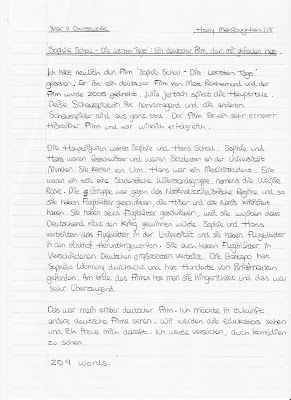 Year 11 Coursework
Sophie Scholl - Die Letzten Tage: Ein deutscher Film, der mir gefallen hat.
Ich habe neulich den Film "Sophie Scholl - Die Letzten Tage"
gesehen. Er ist ein deutscher Film von Marc Rothemund und der
Film wurde 2005 gedreht. Julia Jentsch spielt die Hauptrolle.
Diese Schauspielerin ist hervorragend und die anderen
Schauspieler sind auch ganz toll. Der Film ist ein sehr ernster
Historischer Film und war wirklich erfolgreich.
Die Hauptfiguren waren Sophie und Hans Scholl. Sophie und
Hans waren Geschwister und waren Studenten an der Universität
München. Sie kamen von Ulm. Hans war ein Medizinstudent. Sie
waren ein teil eine Studentische Widerstandsgruppe, namens die Weiße
Rose. Die Gruppe war gegen das Nationalsozialistische Regime und so
sie haben Flugblätter geschrieben, die Hitler und die Nazis kritisiert
haben. Sie haben sechs Flugblätter geschrieben, weil sie wußten dass
Deutschland nicht den Krieg gewinnen würde. Sophie und Hans
verteilten das Flugblätter in der Universität und sie haben Flugblätter
in den Lichthof heruntergeworfen. Sie auch haben Flugblätter in
verschiedenen Deutschen großstädten verteilt. Die Gestapo hat
Sophies Wohnung durchsucht und hat Hunderte von Briefmarken
gefunden. Am ende des Filmes hat man sie hingerichtet und das war
sehr überzeugend.
Das war mein erster deutscher Film. Ich möchte in zukunft
andere deutsche Filme sehen. Wir werden die Edukators sehen
und ich freue mich darauf. Ich werde versuchen, auch komödien
zu sehen.
209 words